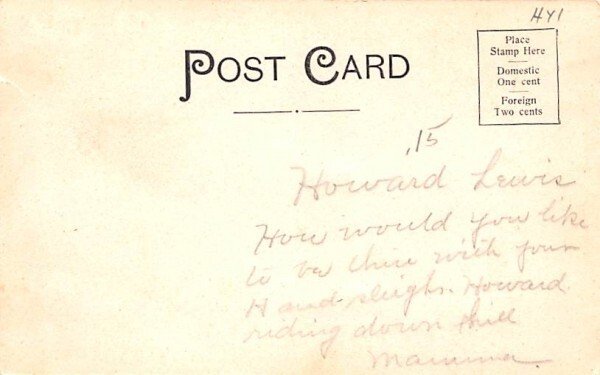 H41
POST CARD
Place
Stamp Here
Domestic
One cent
Foreign
Two cents
.15
Howard Lewis
How would you like
to be thire with your
Hand-sleighs. Howard
riding down hill
Mamma.